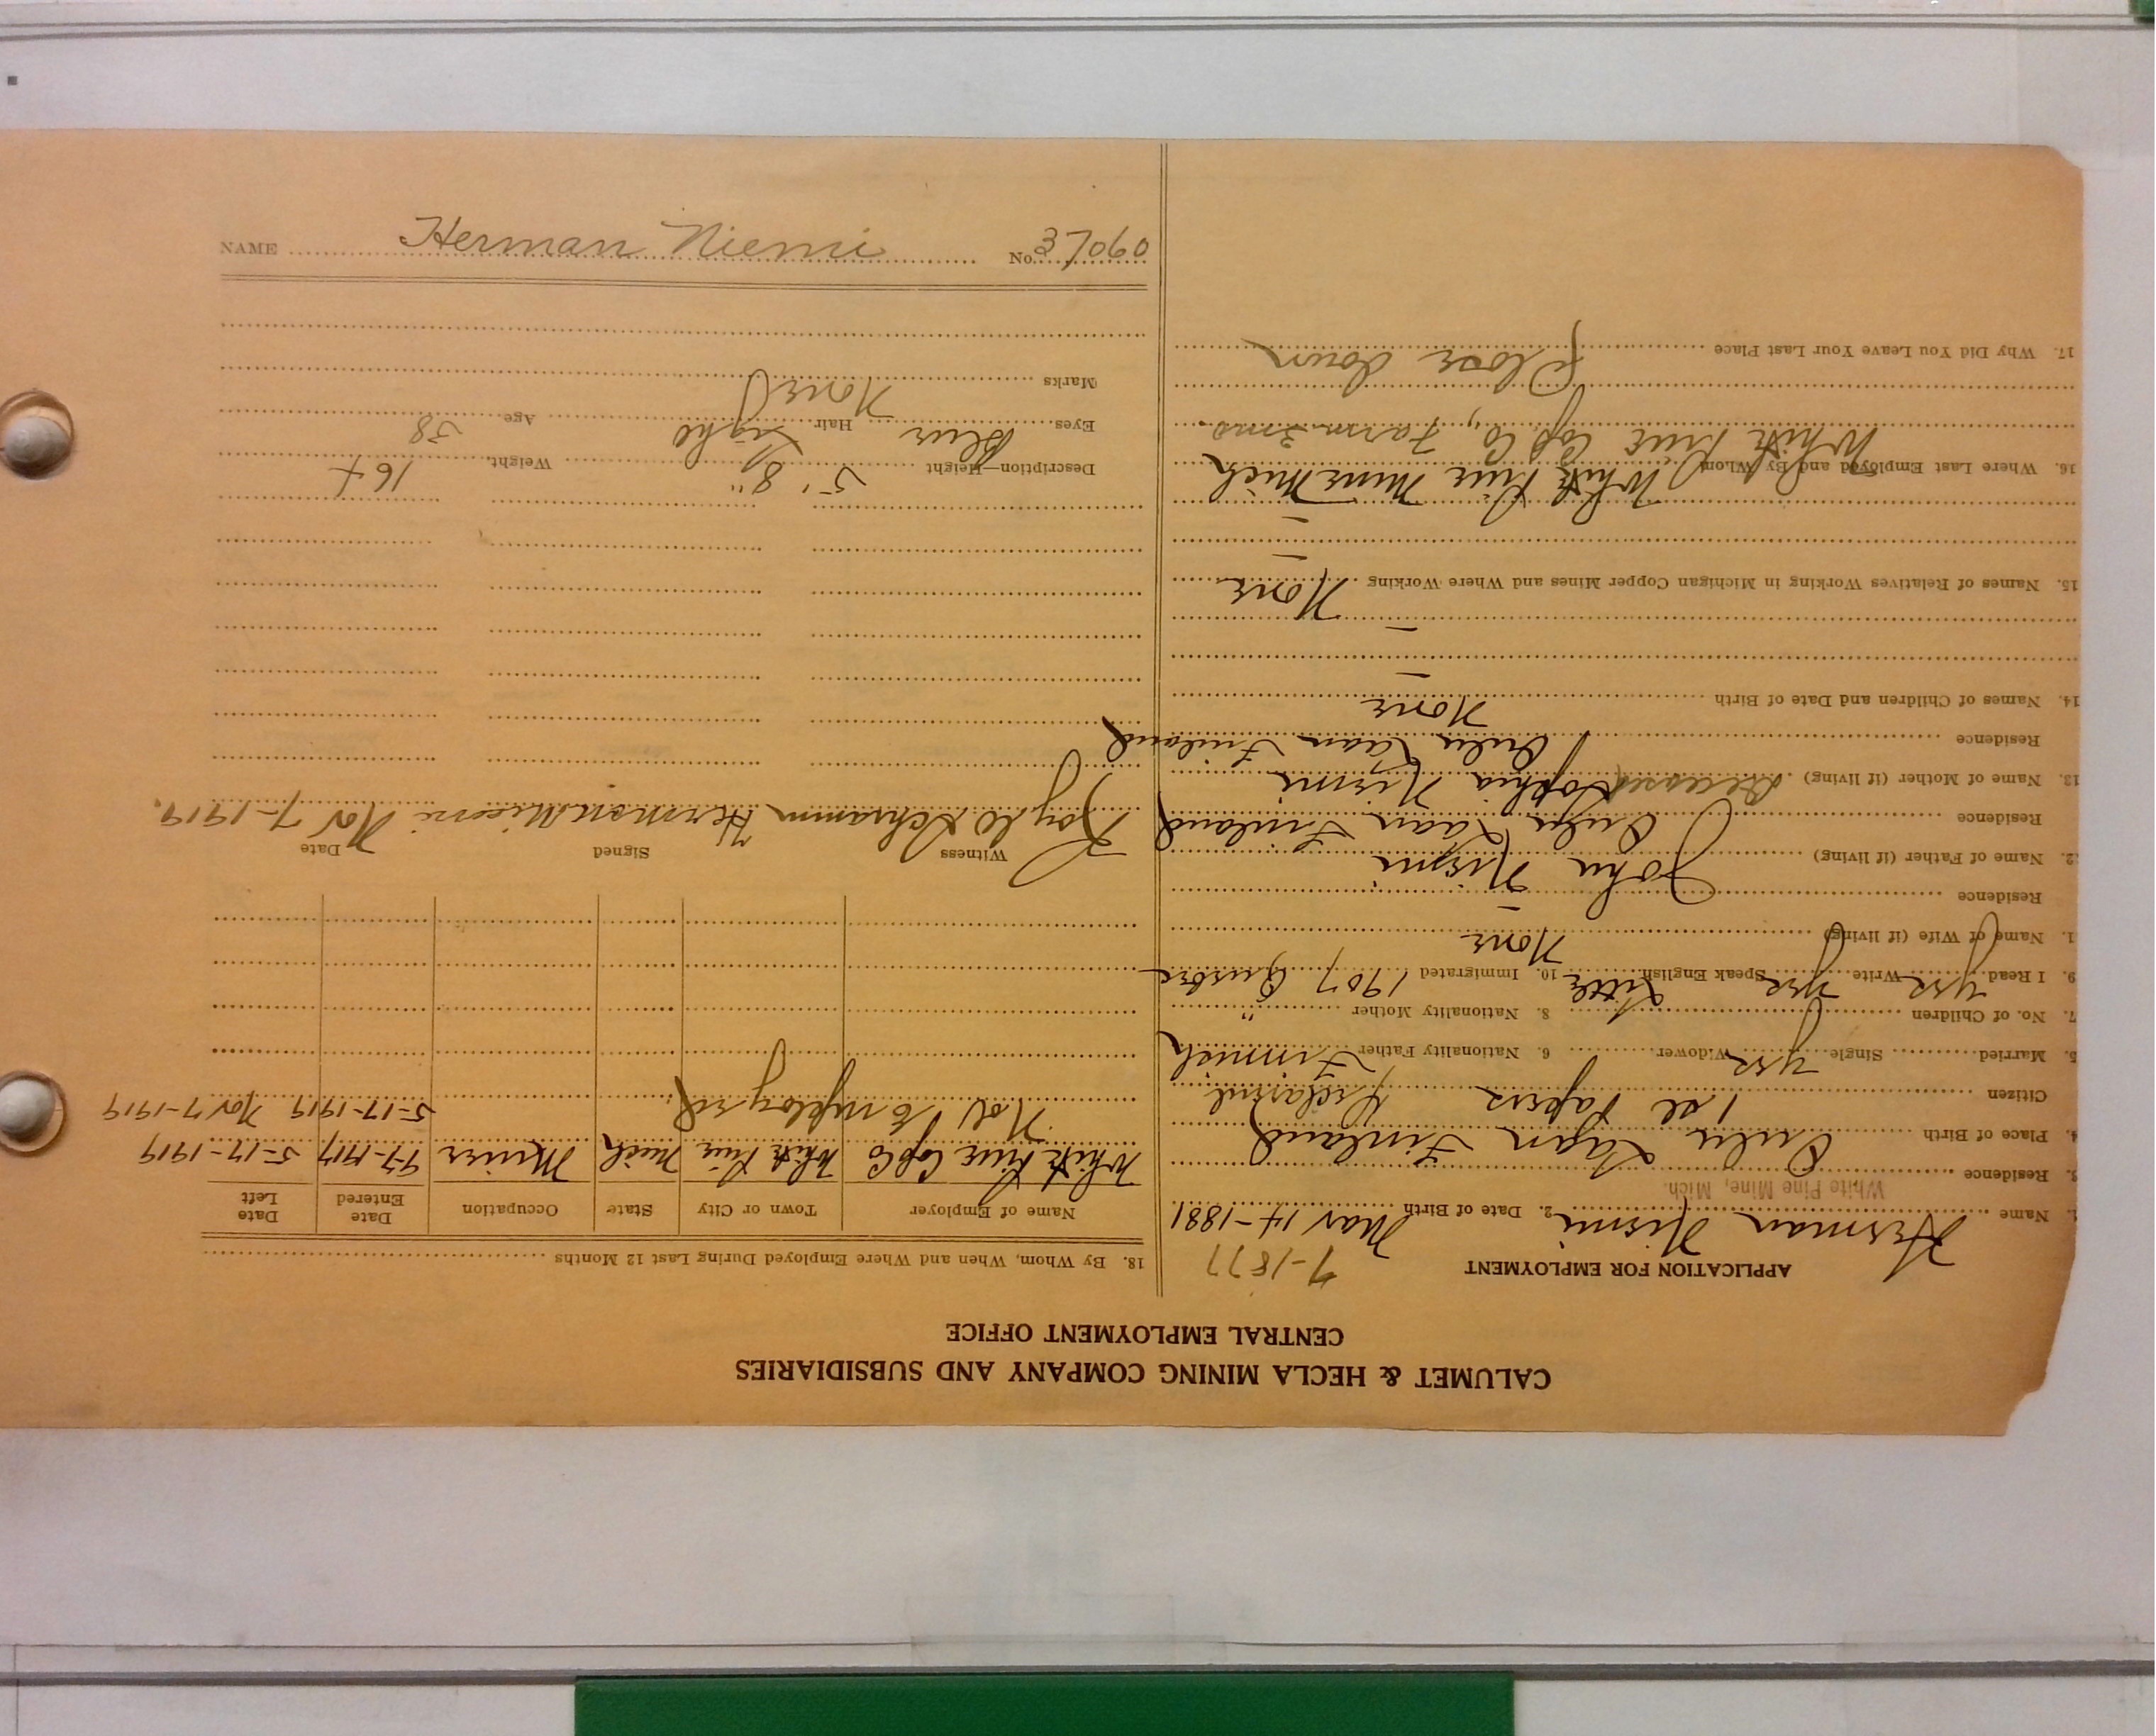 CALUMET & HECLA MINING COMPANY AND SUBSIDIARIES
CENTRAL EMPLOYMENT OFFICE
APPLICATION FOR EMPLOYMENT
7-1877
1. Name Herman Niemi 2. Date of Birth Mar 14-1881
White Pine Mine, Mich.
3. Residence
4. Place of Birth Oulu Laan Finland
Citizen 1st Papers Declared
5. Married Single yes Widower 6. Nationality Father Finnish
7. No. of Children 8. Nationality Mother "
9. I Read yes Write yes Speak English Little 10. Immigrated 1907
11. Name of Wife (if living) None
Residence
12. Name of Father (if living) John Niemi
Residence Oulu Laan Finland
13. Name of Mother (if living) Deceased Sophia Niemi
Residence Oulu Laan Finland
14. Names of Children and Date of Birth None
15. Names of Relatives Working in Michigan Copper Mines and Where Working None
16. Where Last Employed and By Whom White Pine Mine Mich
White Pine Cop. Co., Farm 3 mo
17. Why Did You Leave Your Last Place Close down
18. By Whom, When and Where Employed During Last 12 Months
Name of Employer Town or City State Occupation Date Entered Date Left
White Pine Cop Co White Pine Mich Miner 1917 5-17-1919
Not Employed 5-17-1919 Nov 7-1919
Witness Signed Date
Roy C. Schramm Herman Niemi Nov 7-1919.
Description—Height 5' 8" Weight 164
Eyes Blue Hair Light Age 38
Marks None
NAME Herman Niemi No. 37060